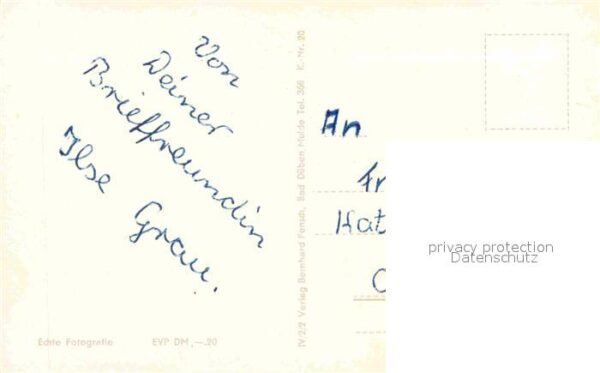 Von
Deiner
Brieffreundin
Ilse Grau.
Echte Fotografie EVP DM -.20
IV/2/2 Verlag Bernhard Fensch, Bad Düben, Mulde Tel. 358 K.-Nr. 20
An
Fr
Kat
privacy protection
Datenschutz